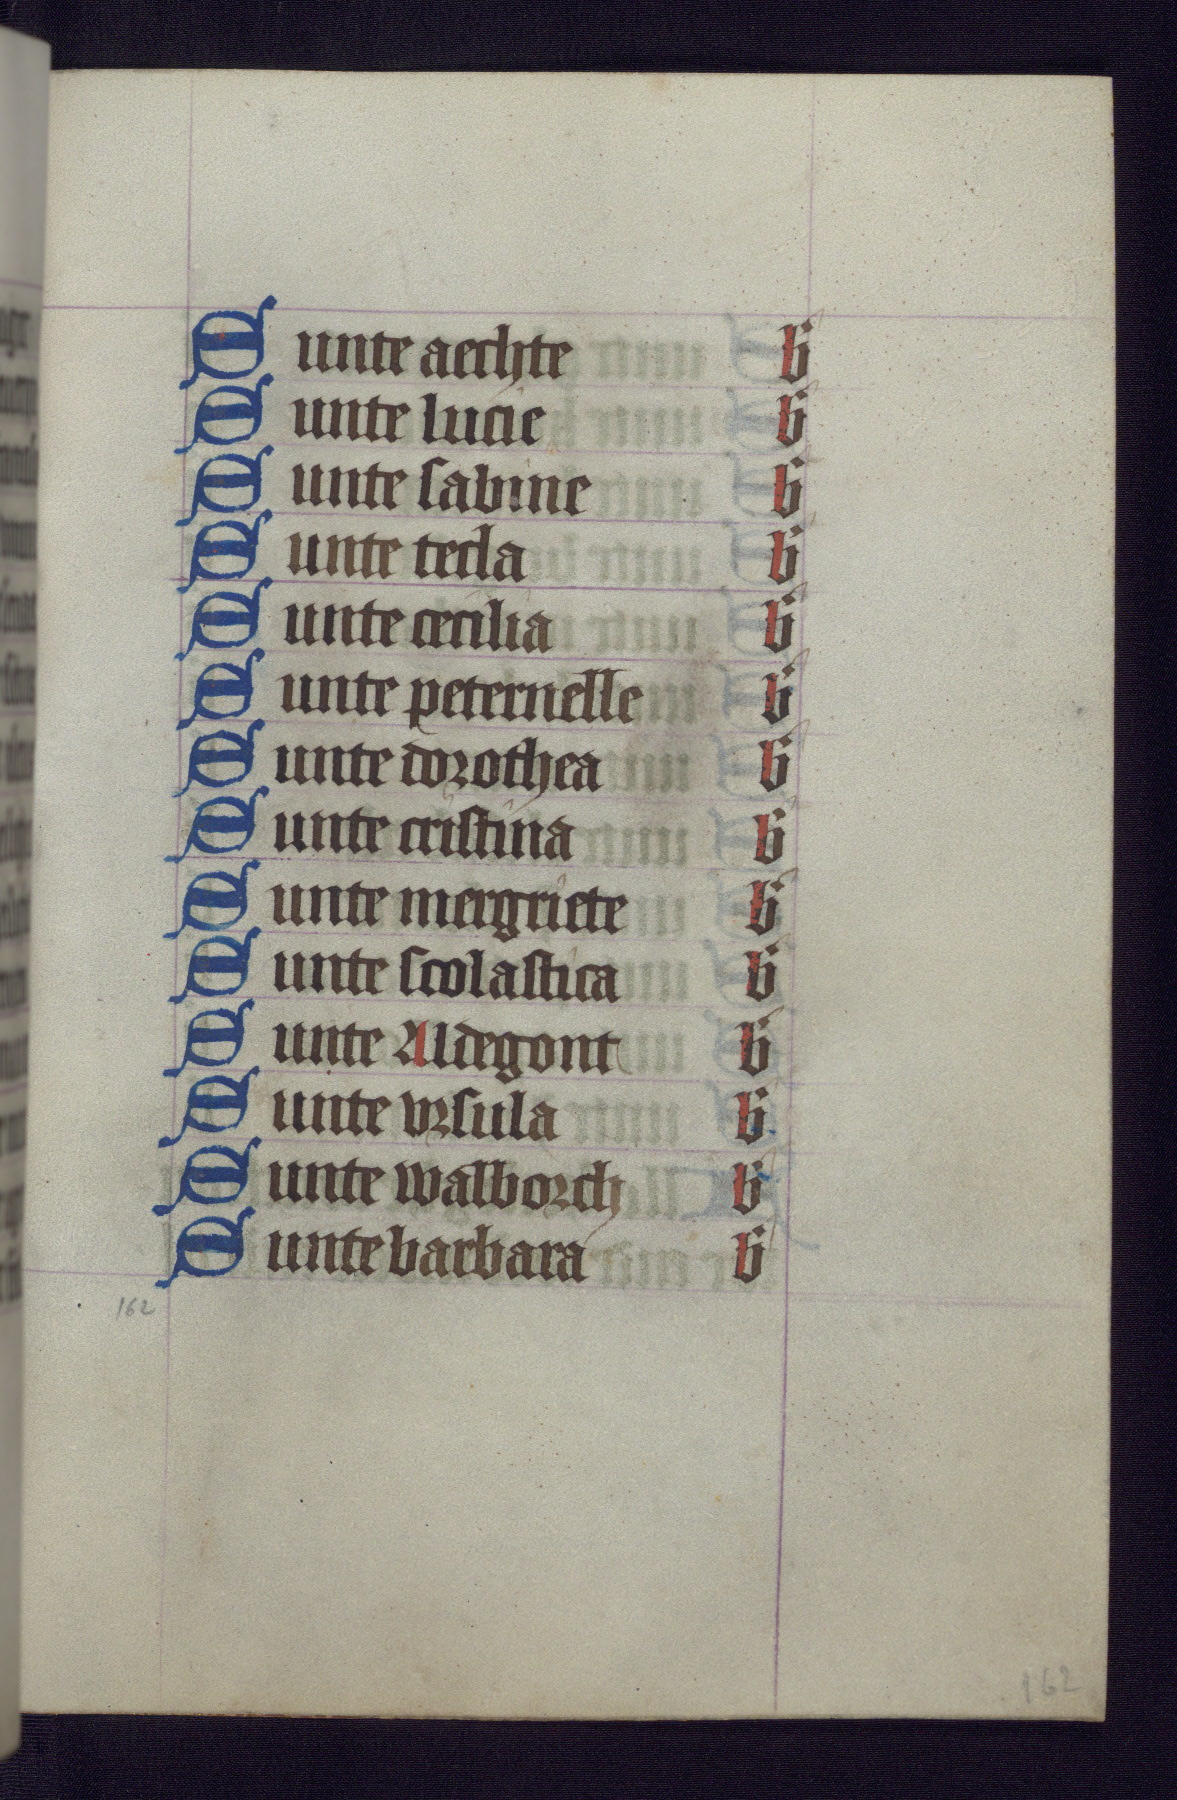 Sunte aechte b
Sunte lucie b
Sunte sabine b
Sunte tecla b
Sunte cecilia b
Sunte peternelle b
Sunte dorothea b
Sunte cristina b
Sunte mergriete b
Sunte scolastica b
Sunte Aldegont b
Sunte vrsula b
Sunte walborch b
Sunte barbara b
162
162